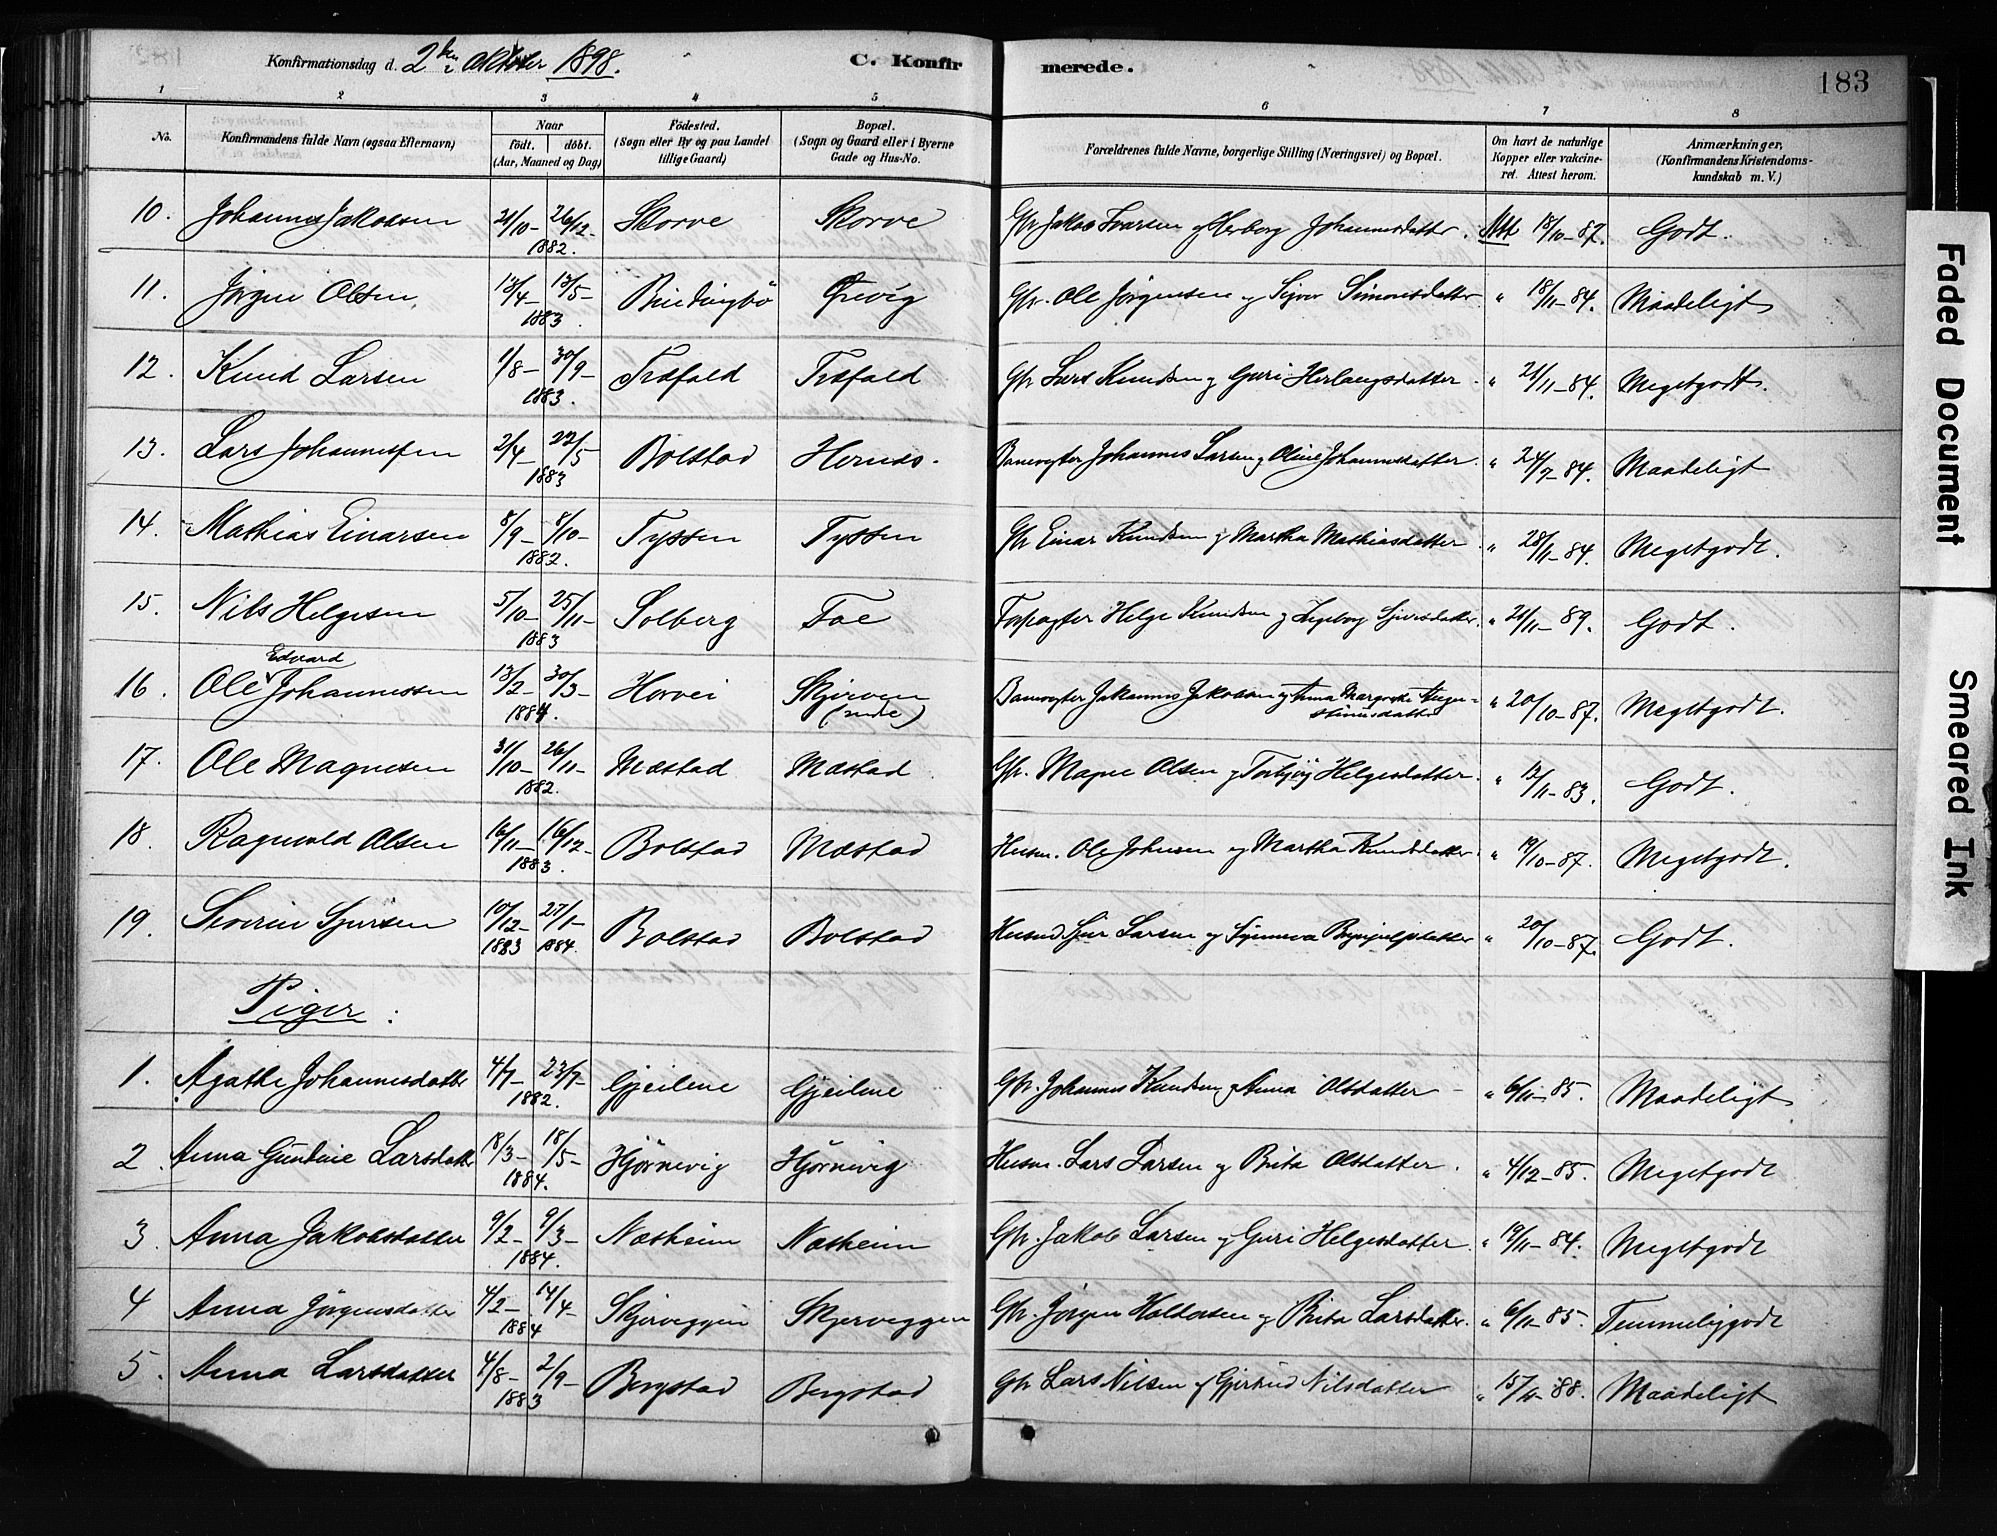 Konfirmationsdag d. 2den Oktober 1898. C. Konfirmerede. 183
1 2 3 4 5 6 7 8
No. Konfirmandens fulde Navn (ogsaa Efternavn) Naar født. døbt. (Aar, Maaned og Dag) Fødested. (Sogn eller By og paa Landet tillige Gaard) Bopæl. (Sogn og Gaard eller i Byerne Gade og Hus-No. Forældrenes fulde Navne, borgerlige Stilling (Næringsvei) og Bopæl. Om havt de naturlige Kopper eller vakcineret. Attest herom. Anmærkninger, (Konfirmandens Kristendomskundskab m. V.)
10. Johannes Jakobsen 21/10 - 26/12 - 1882. Skorve Skorve Gbr Jakob Ivarsen og Herborg Johannesdatter. Att 18/10-87. Godt.
11. Jörgen Olsen. 13/4 - 13/5 - 1883. Bindingbö Örevig Gbr. Ole Jørgensen og Sigvor Simonsdatter " 18/11-84. Maadeligt
12. Knud Larsen 1/8 - 30/9 - 1883. Træfald Træfald Gbr Lars Knudsen og Guri Herlaugsdatter. " 21/11-84. Megetgodt.
13. Lars Johannessen 2/4 - 22/5 1883 Bolstad Hernes. Banevogter Johannes Larsen og Oline Johannesdatter. " 24/7-84. Maadeligt
14. Mathias Einarsen 8/9 - 8/10 - 1882. Tyssen Tyssen Gbr Einar Knudsen og Martha Mathiasdatter " 28/11-84. Megetgodt.
15. Nils Helgesen 5/10 - 25/11 - 1883 Solberg Foe Forpagter Helge Knudsen og Ingeborg Sjursdatter. " 21/11-89. Godt.
16. Ole Edvard Johannessen 13/2 - 30/3 - 1884. Horvei Skjerven (nedre) Banevogter Johannes Jakobsen og Anna Margrethe Augustinusdatter " 20/10-87. Megetgodt.
17. Ole Magnesen 31/10 - 26/11 - 1882. Mæstad Mæstad Gbr. Magne Olsen og Torbjørg Helgesdatter. " 12/11-83. Godt.
18. Ragnvald Olsen 16/11 - 16/12 - 1883. Bolstad Mæstad Husm. Ole Johnsen og Martha Knudsdatter. " 19/10-87. Megetgodt.
19. Severin Sjursen 10/12 - 1883 27/1 - 1884. Bolstad Bolstad Husmd Sjur Larsen og Synneva Brynjulfsdatter " 20/10-87. Godt.
Piger:
1. Agathe Johannesdatter 4/7 - 23/7 - 1882. Gjeilene Gjeilene Gbr. Johannes Knudsen og Anna Olsdatter - " 6/11-85. Maadeligt
2. Anna Gundine Larsdatter 18/3 - 18/5 - 1884. Hjørnevig Hjørnevig Husm. Lars Larsen og Brita Olsdatter. " 4/12-85. Megetgodt
3. Anna Jakobsdatter 9/2 - 9/3 - 1884. Næsheim Næsheim Gbr. Jakob Larsen og Guri Helgesdatter. " 19/11-84. Megetgodt
4 Anna Jørgensdatter 4/2 - 14/4 - 1884 Skjerveggen Skjerveggen Gbr. Jørgen Haldorsen og Brita Larsdatter. " 6/11-85. Temmeliggodt
5. Anna Larsdatter 4/8 - 2/9 - 1883 Bergstad Bergstad Gbr Lars Nilsen og Gjertrud Nilsdatter " 15/11-88. Maadeligt
Faded Document
Smeared Ink